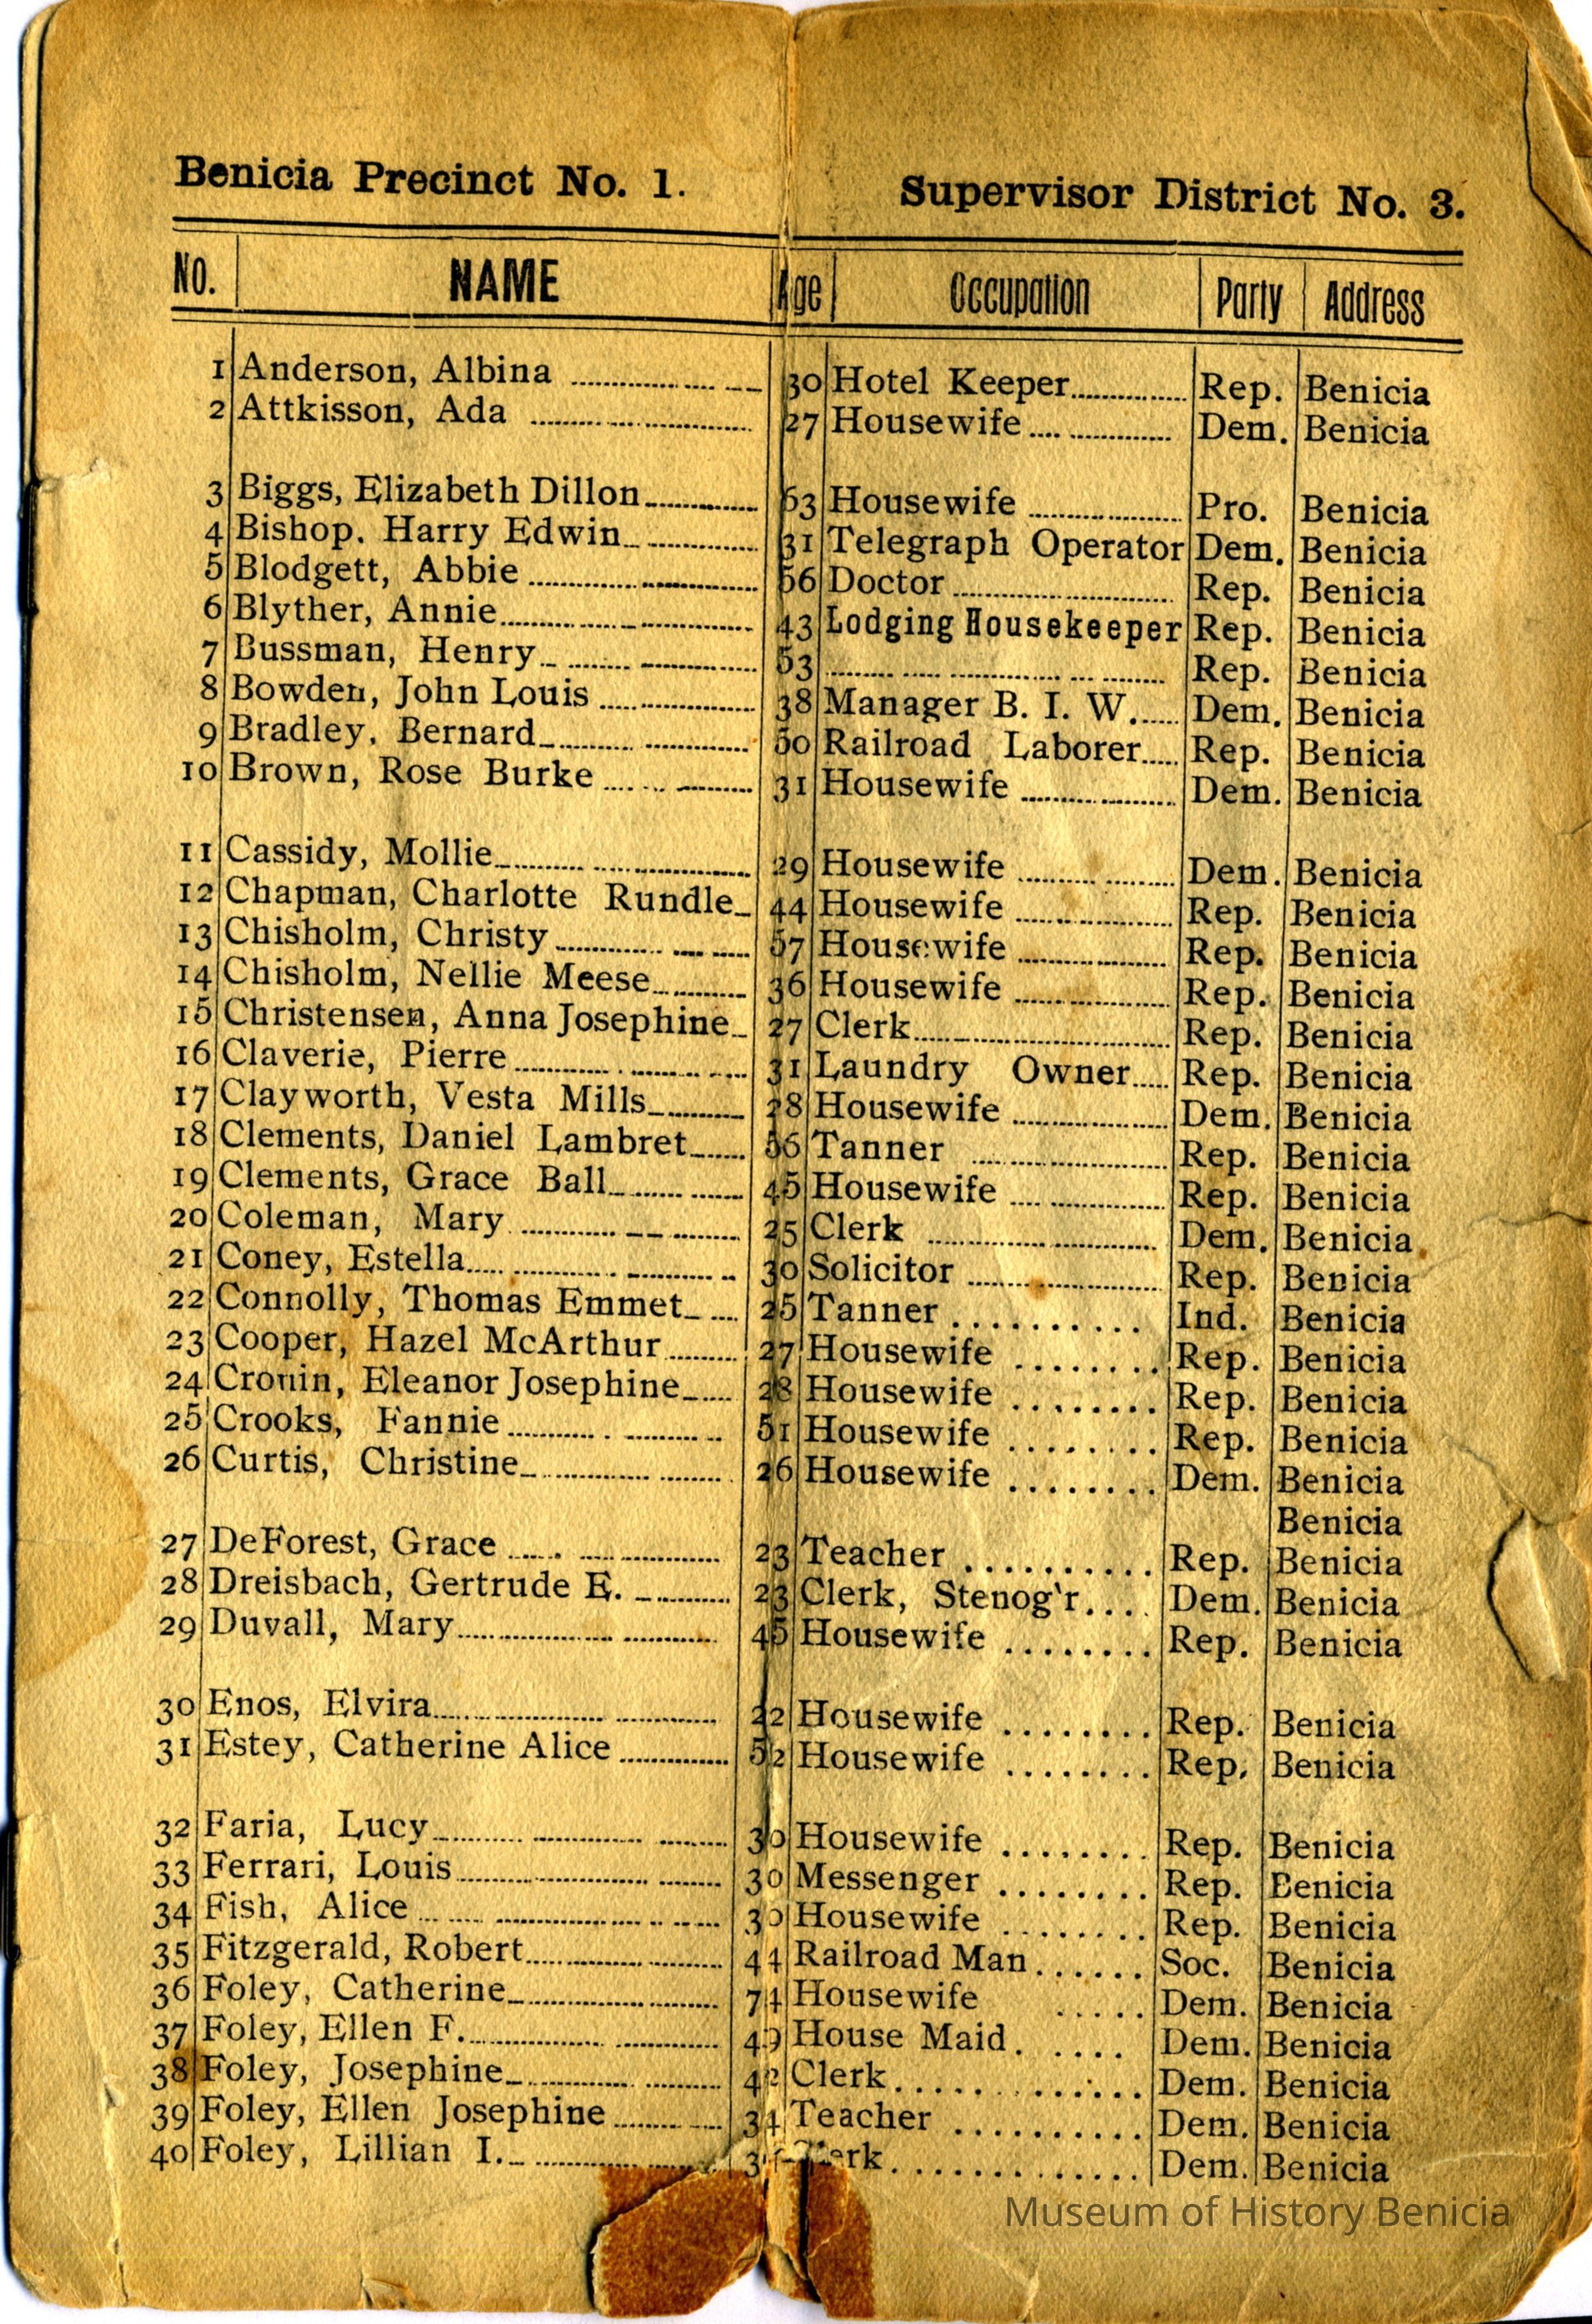 Benicia Precinct No. 1. Supervisor District No. 3.
No. NAME Age Occupation Party Address
1 Anderson, Albina 30 Hotel Keeper Rep. Benicia
2 Attkisson, Ada 27 Housewife Dem. Benicia
3 Biggs, Elizabeth Dillon 53 Housewife Pro. Benicia
4 Bishop. Harry Edwin 31 Telegraph Operator Dem. Benicia
5 Blodgett, Abbie 56 Doctor Rep. Benicia
6 Blyther, Annie 43 Lodging Housekeeper Rep. Benicia
7 Bussman, Henry 53 Rep. Benicia
8 Bowden, John Louis 38 Manager B. I. W. Dem. Benicia
9 Bradley. Bernard 50 Railroad Laborer Rep. Benicia
10 Brown, Rose Burke 31 Housewife Dem. Benicia
11 Cassidy, Mollie 29 Housewife Dem. Benicia
12 Chapman, Charlotte Rundle 44 Housewife Rep. Benicia
13 Chisholm, Christy 57 Housewife Rep. Benicia
14 Chisholm, Nellie Meese 36 Housewife Rep. Benicia
15 Christensen, Anna Josephine 27 Clerk Rep. Benicia
16 Claverie, Pierre 31 Laundry Owner Rep. Benicia
17 Clayworth, Vesta Mills 28 Housewife Dem. Benicia
18 Clements, Daniel Lambret 56 Tanner Rep. Benicia
19 Clements, Grace Ball 45 Housewife Rep. Benicia
20 Coleman, Mary 25 Clerk Dem. Benicia
21 Coney, Estella 30 Solicitor Rep. Benicia
22 Connolly, Thomas Emmet 25 Tanner Ind. Benicia
23 Cooper, Hazel McArthur 27 Housewife Rep. Benicia
24 Cronin, Eleanor Josephine 28 Housewife Rep. Benicia
25 Crooks, Fannie 51 Housewife Rep. Benicia
26 Curtis, Christine 26 Housewife Dem. Benicia
Benicia
27 DeForest, Grace 23 Teacher Rep. Benicia
28 Dreisbach, Gertrude E. 23 Clerk, Stenog'r Dem. Benicia
29 Duvall, Mary 45 Housewife Rep. Benicia
30 Enos, Elvira 22 Housewife Rep. Benicia
31 Estey, Catherine Alice 52 Housewife Rep. Benicia
32 Faria, Lucy 30 Housewife Rep. Benicia
33 Ferrari, Louis 30 Messenger Rep. Benicia
34 Fish, Alice 30 Housewife Rep. Benicia
35 Fitzgerald, Robert 44 Railroad Man Soc. Benicia
36 Foley, Catherine 74 Housewife Dem. Benicia
37 Foley, Ellen F. 49 House Maid Dem. Benicia
38 Foley, Josephine 42 Clerk Dem. Benicia
39 Foley, Ellen Josephine 34 Teacher Dem. Benicia
40 Foley, Lillian I. Clerk Dem. Benicia
Museum of History Benicia